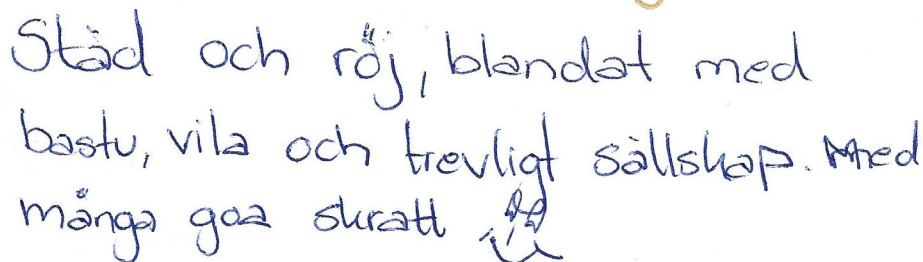 Städ och röj, blandat med
bastu, vila och trevligt sällskap. Med
många goa skratt